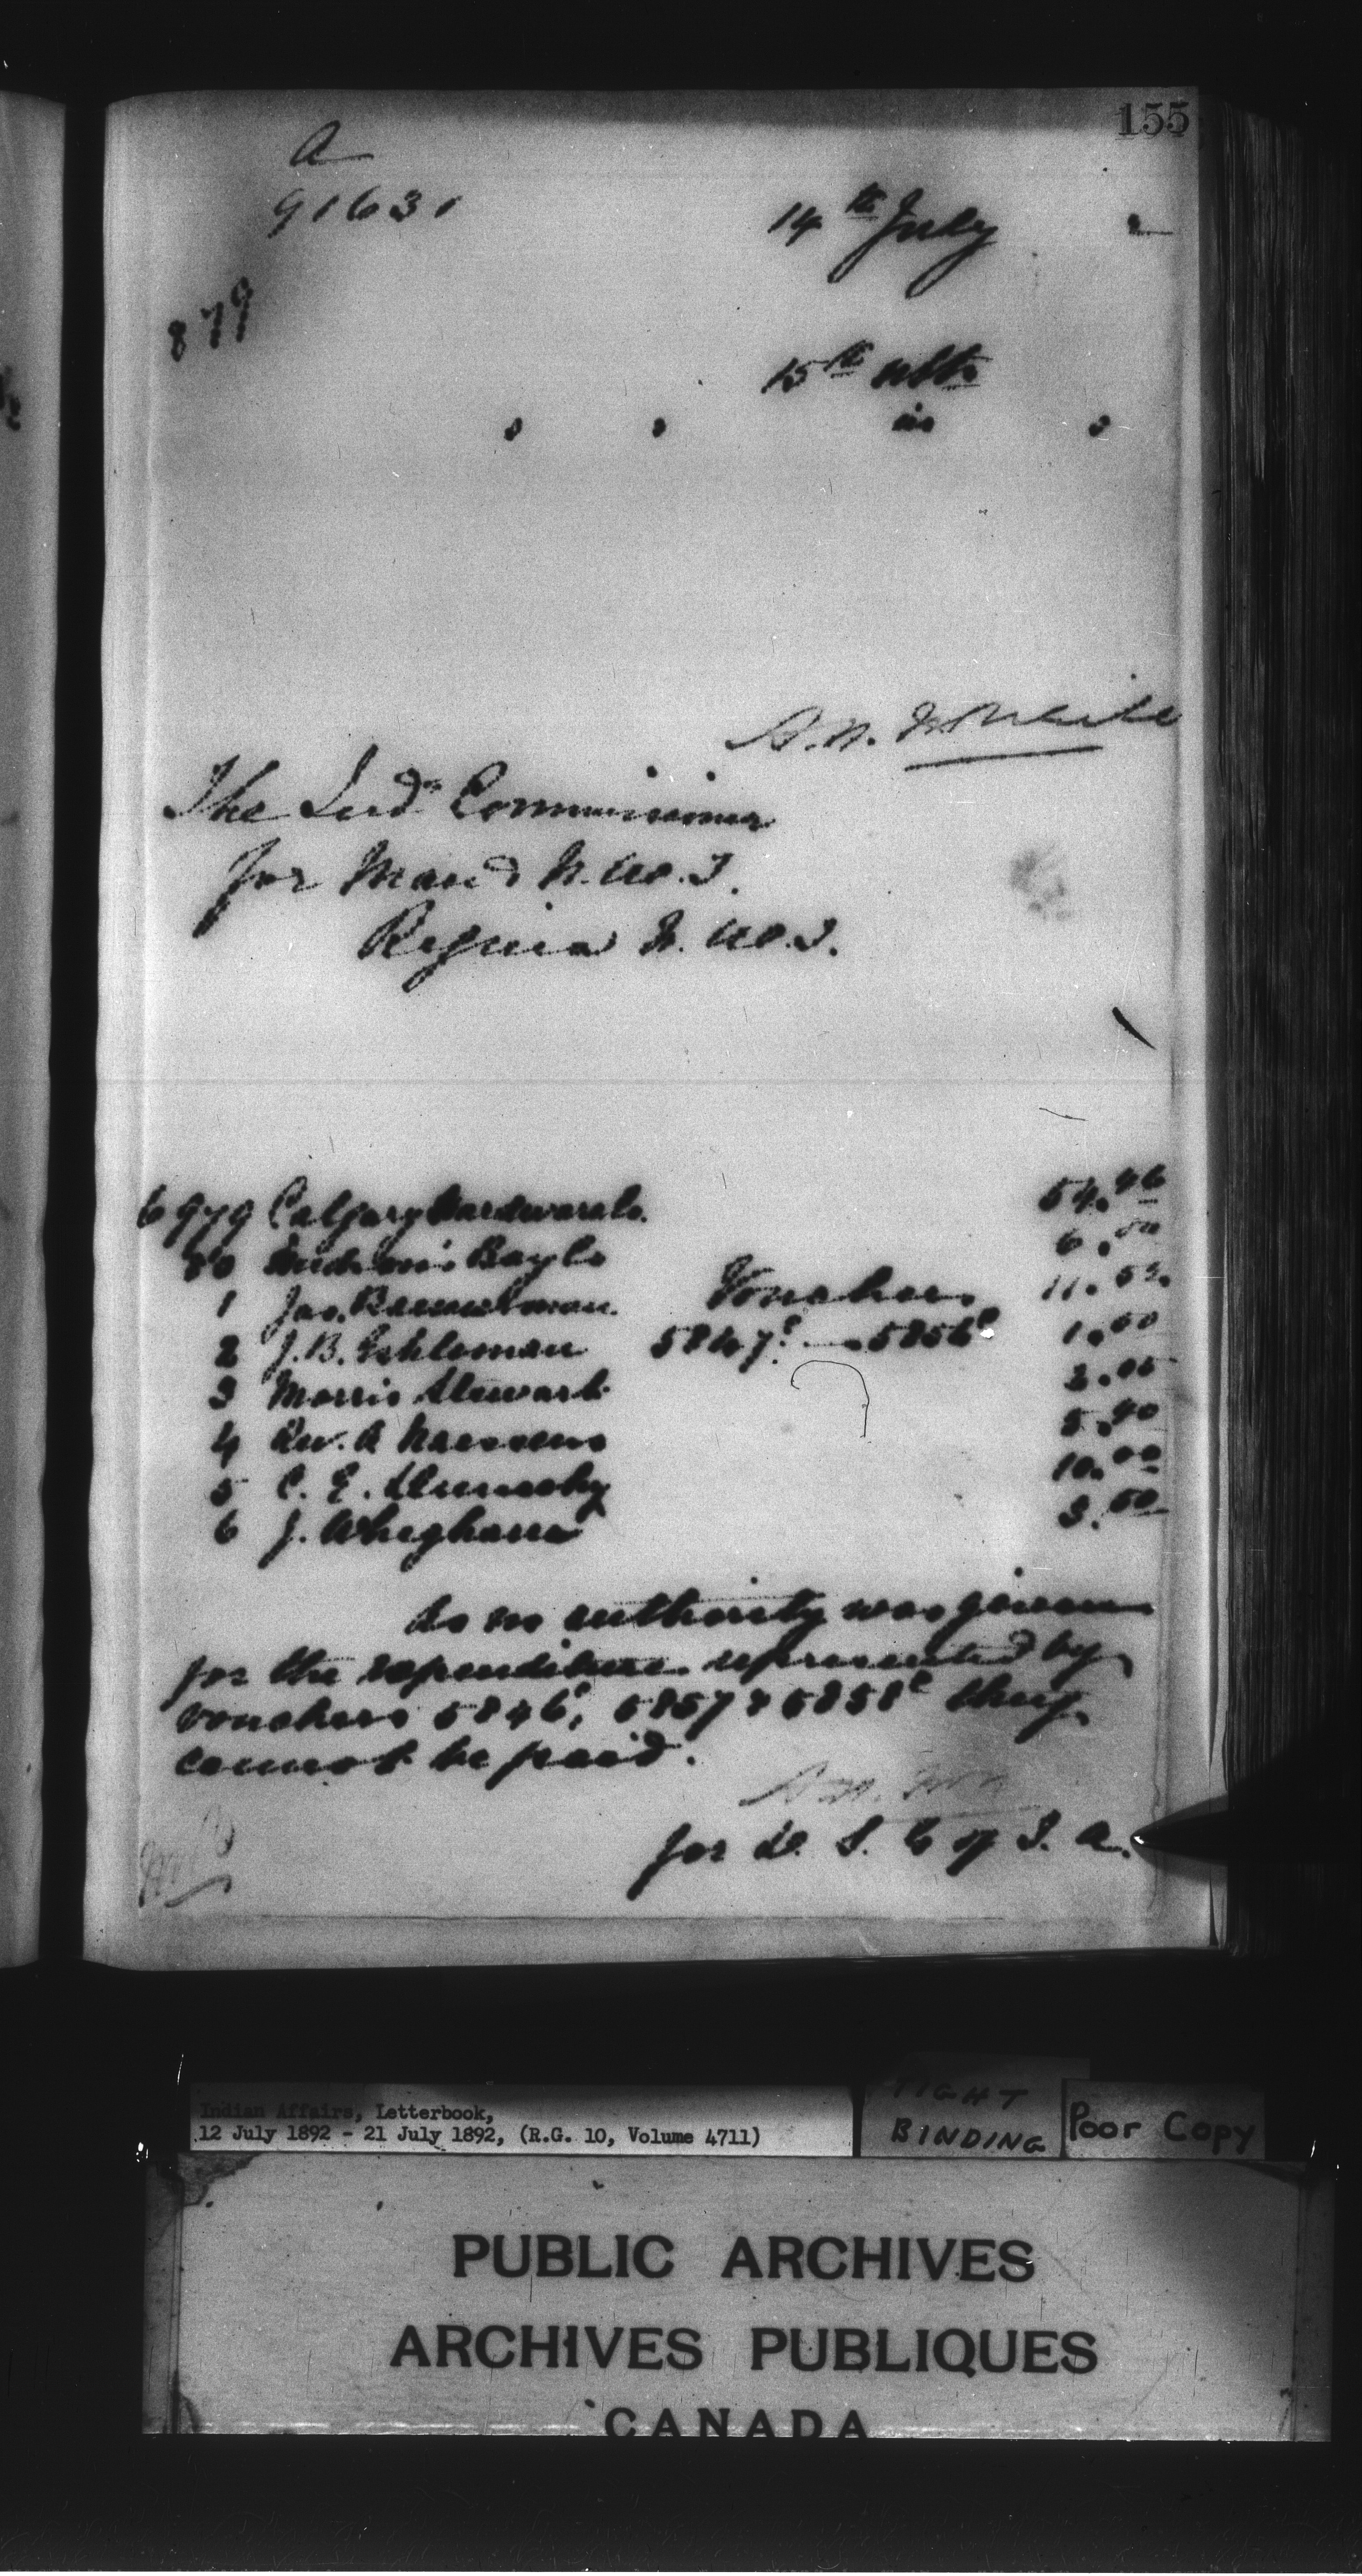 155
a
91631
14th July 2
879
15th ulto
is
A. N. McNeill
The Ind. Commissioner
for Man & N.W.T.
Regina N.W.T.
6979 Calgary Hardware Co. 54.46
80 Bay Co 6.50
1 Jas. Vouchers 11.
2 J.B. Eshleman 5847c — 5856c 1.00
3 Morris Stewart 2.05
4 Rev. A Naessens 5.40
5 C. E. 10.00
6 J. Whigham 3.50
As no authority was given
for the expenditure represented by
vouchers 5846c, 5857 & 5858c they
cannot be paid.
for D. S. G of I. A.
Indian Affairs, Letterbook,
12 July 1892 - 21 July 1892, (R.G. 10, Volume 4711)
TIGHT
BINDING
Poor Copy
PUBLIC ARCHIVES
ARCHIVES PUBLIQUES
CANADA